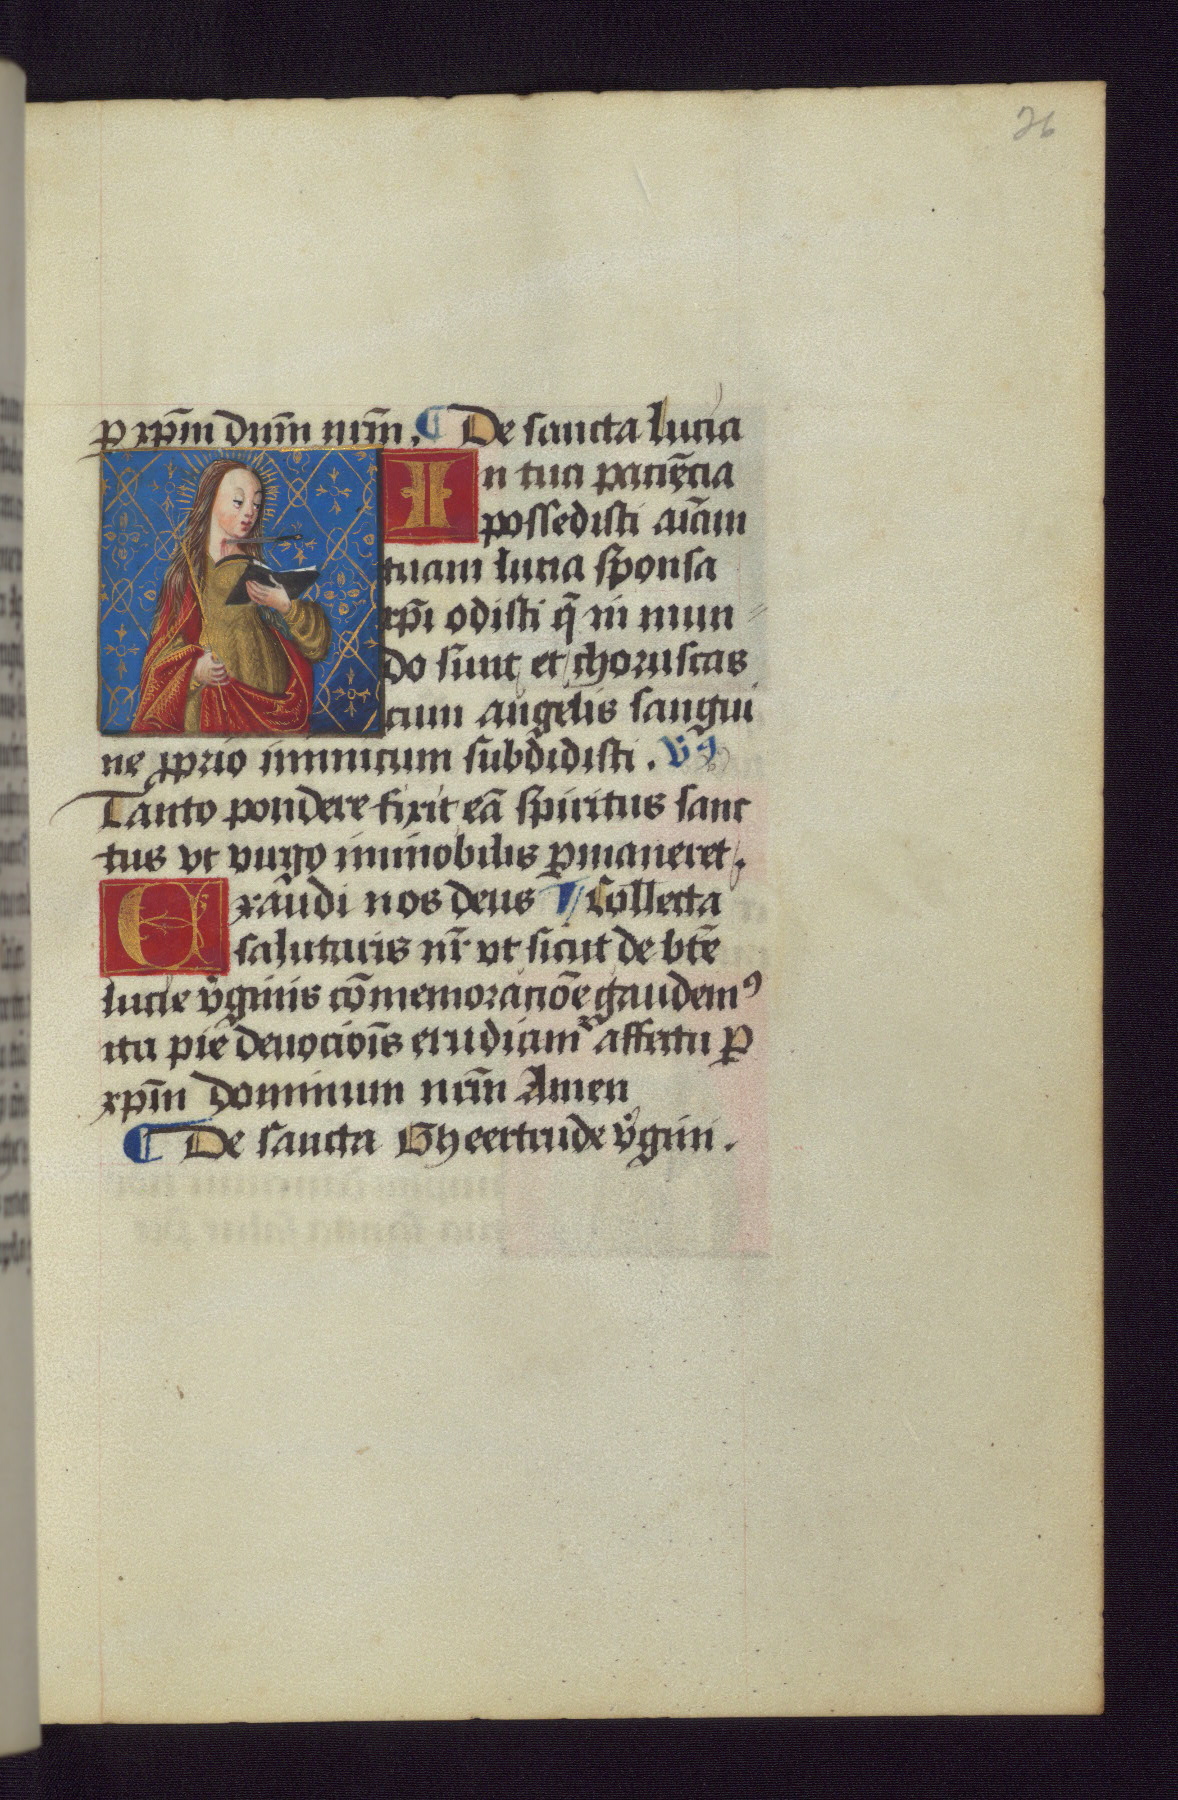 26
p xp̄m dn̄m nr̄m. ¶ De sancta lucia
In tua paciēcia
possedisti aīam
tuam lucia sponsa
xp̄i odisti q̄ in mun
do sunt et choruscas
cum angelis sangui
ne proprio inimicum subdidisti. Vs
Tanto pondere fixit eā spiritus sanc
tus vt virgo immobilis pmaneret.
Exaudi nos deus ¶ Collecta
salutaris nr̄ vt sicut de btē
lucie v̊ginis cōmemoraciōe gaudemꝰ
ita pie deuociōis erudiamr affectu p
xp̄m dominum nr̄m Amen
¶ De sancta Gheertrude v̊gini.